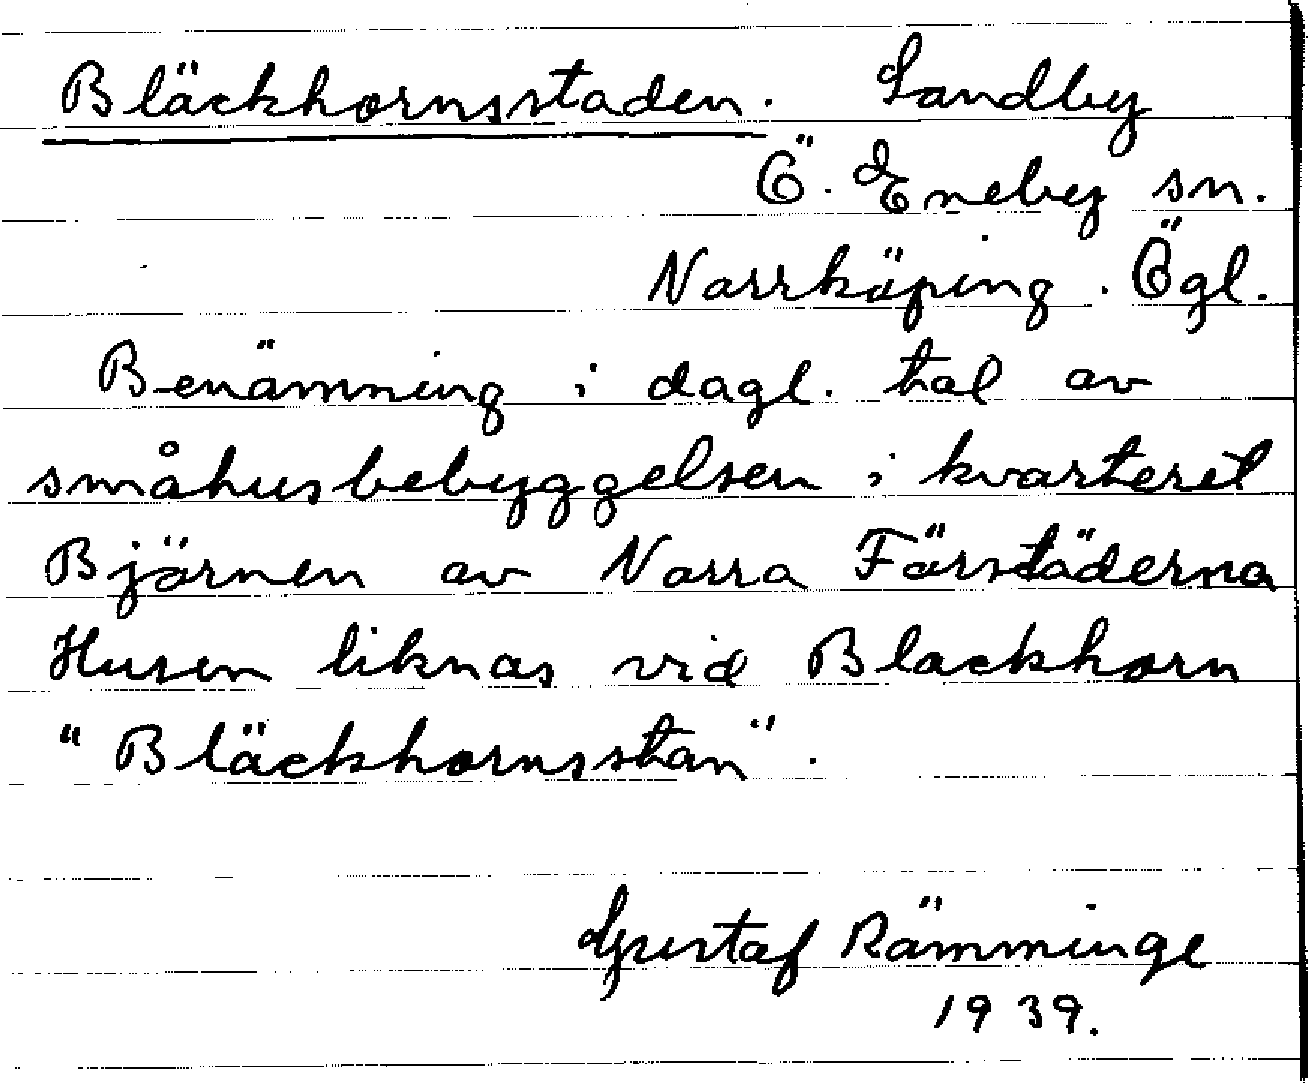 Bläckhornsstaden. Sandby
Ö. Eneby sn.
Norrköping. Ögl.
Benämning i dagl. tal av
småhusbebyggelsen i kvarteret
Björnen av Norra Förstäderna
Husen liknas vid Blackhorn
"Bläckhornsstan".
Gustaf Rämminge
1939.